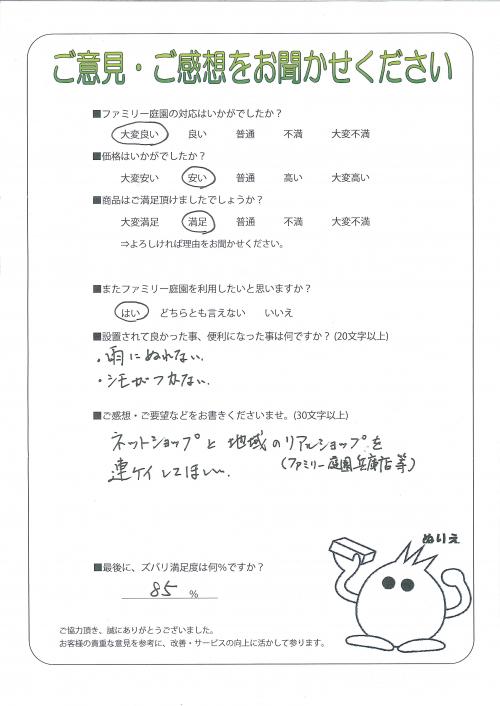 ご意見・ご感想をお聞かせください
■ファミリー庭園の対応はいかがでしたか？
大変良い 良い 普通 不満 大変不満
■価格はいかがでしたか？
大変安い 安い 普通 高い 大変高い
■商品はご満足頂けましたでしょうか？
大変満足 満足 普通 不満 大変不満
⇒よろしければ理由をお聞かせください。
■またファミリー庭園を利用したいと思いますか？
はい どちらとも言えない いいえ
■設置されて良かった事、便利になった事は何ですか？(20文字以上)
・雨にぬれない.
・シモがつかない.
■ご感想・ご要望などをお書きくださいませ。(30文字以上)
ネットショップと地域のリアルショップを
(ファミリー庭園兵庫店等)
連ケイしてほしい.
ぬりえ
■最後に、ズバリ満足度は何%ですか？
85 %
ご協力頂き、誠にありがとうございました。
お客様の貴重な意見を参考に、改善・サービスの向上に活かして参ります。